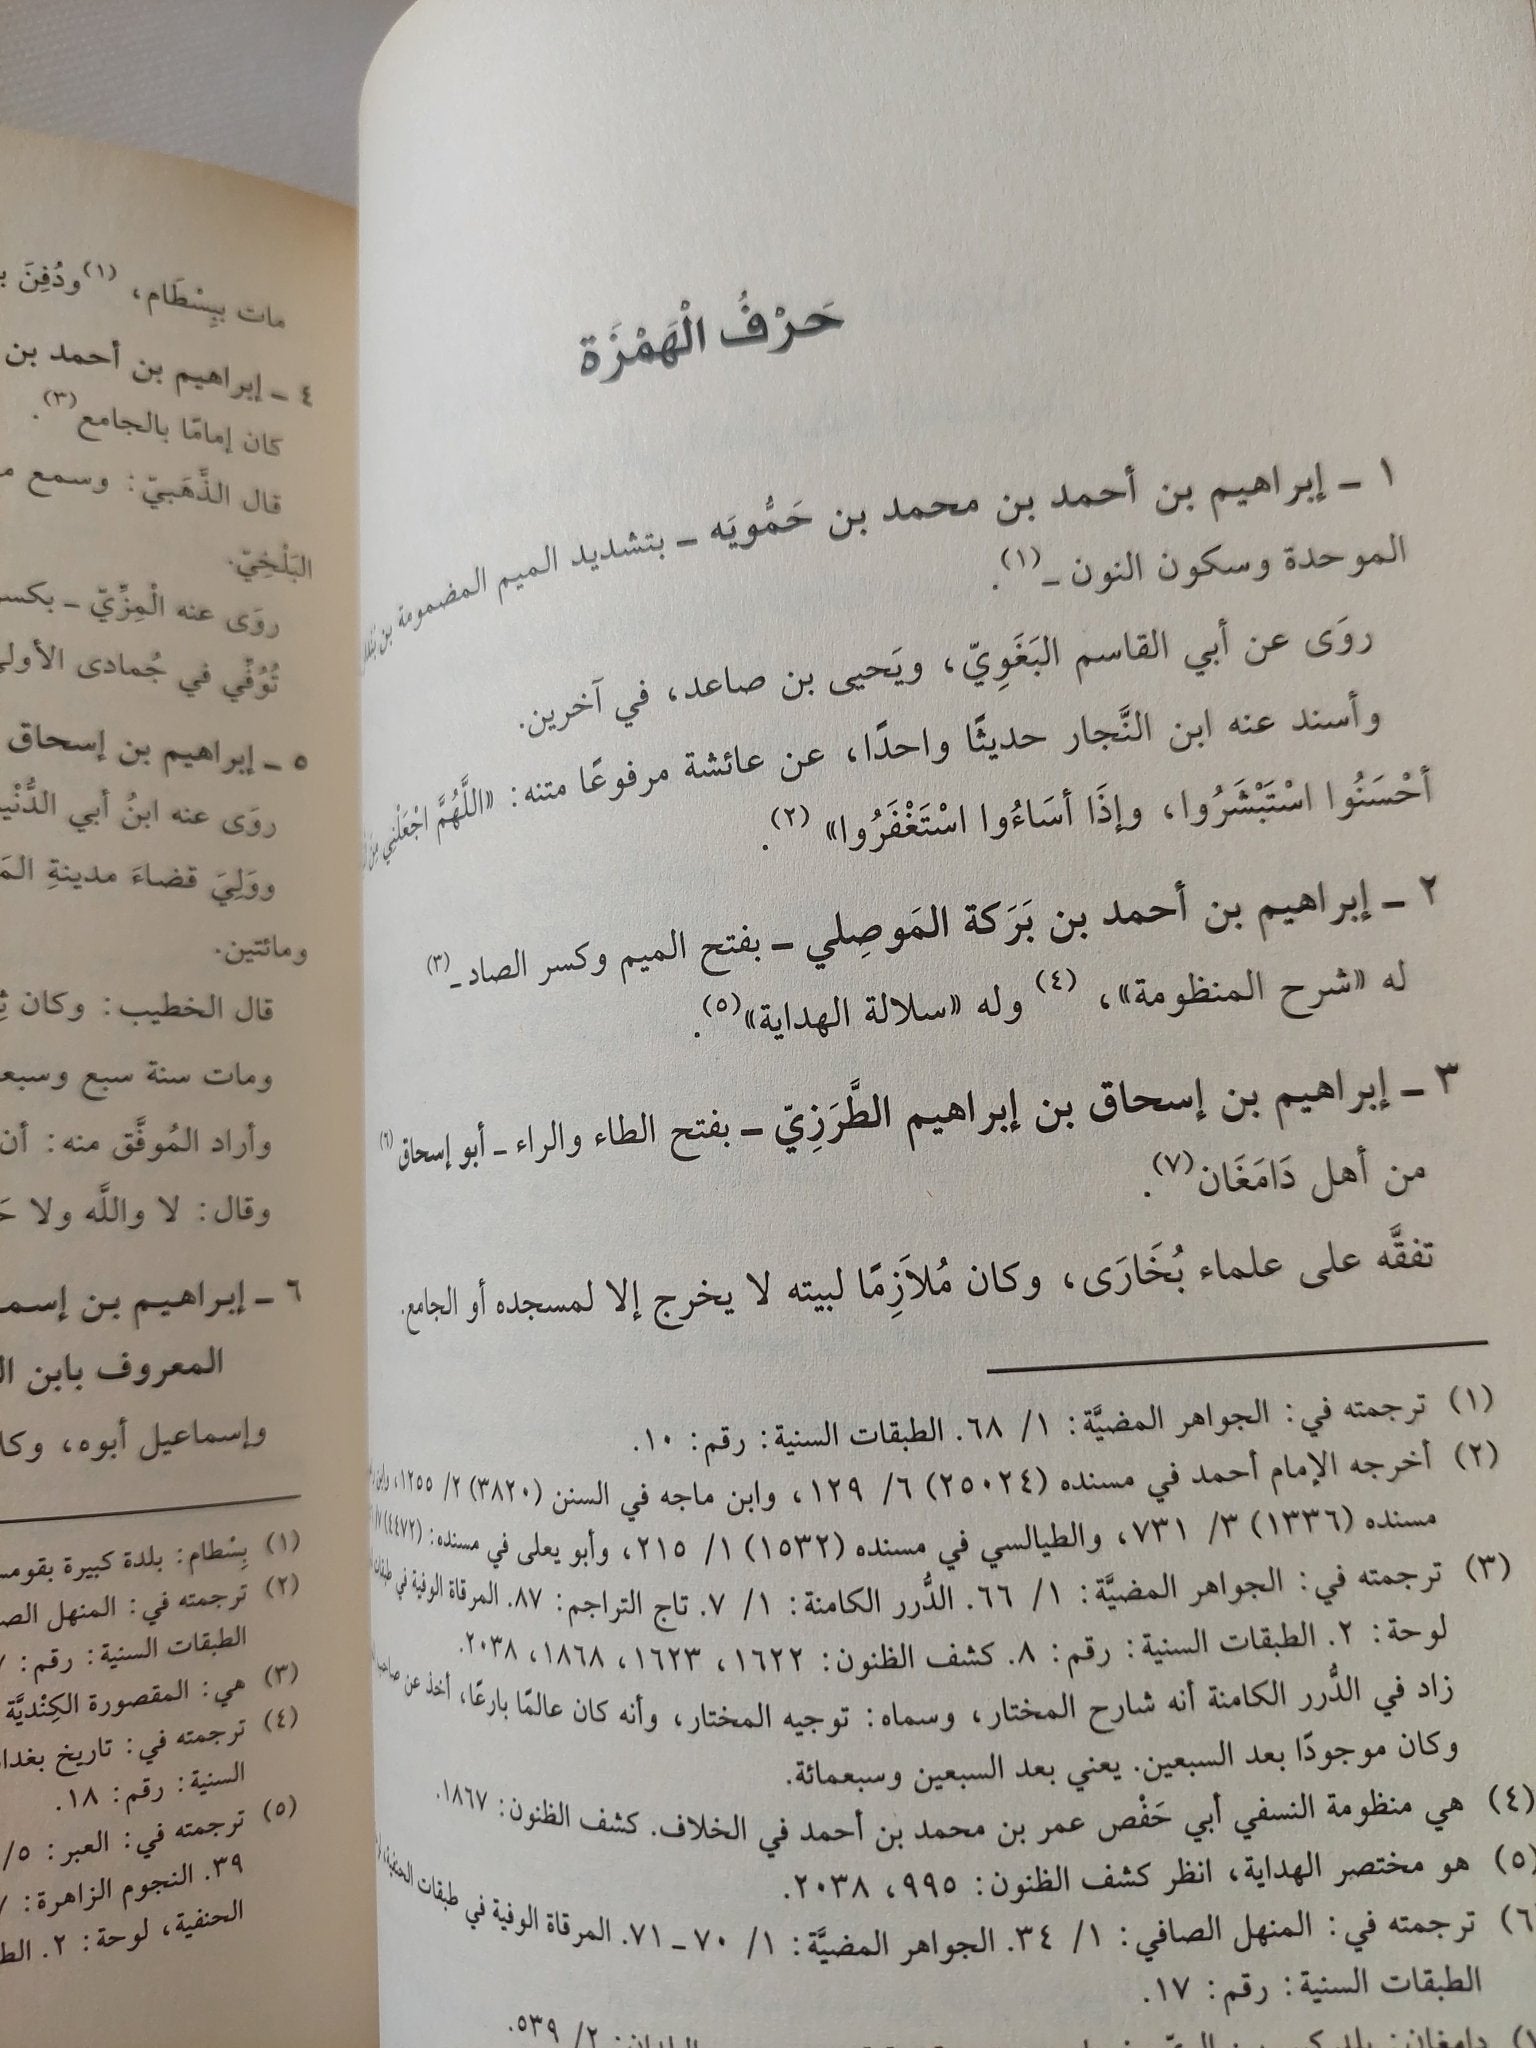 حَرْفُ الْهَمْزَة
١ ـ إبراهيم بن أحمد بن محمد بن حَمُّويَه ـ بتشديد الميم المضمومة بن
الموحدة وسكون النون ـ(١).
روَى عن أبي القاسم البَغَوِيّ، ويَحيى بن صاعد، في آخرين.
وأسند عنه ابن النَّجار حديثًا واحدًا، عن عائشة مرفوعًا متنه: «اللَّهُمَّ اجْعَلْنِي مِنَ
أحْسَنُوا اسْتَبْشَرُوا، وإذَا أسَاءُوا اسْتَغْفَرُوا» (٢).
٢ ـ إبراهيم بن أحمد بن بَرَكة المَوصِلي ـ بفتح الميم وكسر الصاد ـ(٣)
له «شرح المنظومة»، (٤) وله «سلالة الهداية»(٥).
٣ ـ إبراهيم بن إسحاق بن إبراهيم الطَّرَزِيّ ـ بفتح الطاء والراء ـ أبو إسحاق (٦)
من أهل دَامَغَان(٧).
تفقَّه على علماء بُخَارَى، وكان مُلاَزِمًا لبيته لا يخرج إلا لمسجده أو الجامع.
(١) ترجمته في: الجواهر المضيَّة: ١/ ٦٨. الطبقات السنية: رقم: ١٠.
(٢) أخرجه الإمام أحمد في مسنده (٢٥٠٢٤) ٦/ ١٢٩، وابن ماجه في السنن (٣٨٢٠) ٢/ ١٢٥٥،
مسنده (١٣٣٦) ٣/ ٧٣١، والطيالسي في مسنده (١٥٣٢) ١/ ٢١٥، وأبو يعلى في مسنده: (٤٤٧٢)
(٣) ترجمته في: الجواهر المضيَّة: ١/ ٦٦. الدُّرر الكامنة: ١/ ٧. تاج التراجم: ٨٧. المرقاة الوفية في طبقات
لوحة: ٢. الطبقات السنية: رقم: ٨. كشف الظنون: ١٦٢٢، ١٦٢٣، ١٨٦٨، ٢٠٣٨.
زاد في الدُّرر الكامنة أنه شارح المختار، وسماه: توجيه المختار، وأنه كان عالمًا بارعًا، أخذ عن
وكان موجودًا بعد السبعين. يعني بعد السبعين وسبعمائة.
(٤) هي منظومة النسفي أبي حَفْص عمر بن محمد بن أحمد في الخلاف. كشف الظنون: ١٨٦٧.
(٥) هو مختصر الهداية، انظر كشف الظنون: ٩٩٥، ٢٠٣٨.
(٦) ترجمته في: المنهل الصافي: ١/ ٣٤. الجواهر المضيَّة: ١/ ٧٠ ـ ٧١. المرقاة الوفية في طبقات الحنفية،
الطبقات السنية: رقم: ١٧.
٢/ ٥٣٩.
مات ببِسْطَام، (١)ودُفِنَ
٤ ـ إبراهيم بن أحمد بن
كان إمامًا بالجامع(٣).
قال الذَّهَبيّ: وسمع
البَلْخِيّ.
روَى عنه الْمِزِّيّ ـ بكسر
تُوُفِّي في جُمادى الأولى
٥ ـ إبراهيم بن إسحاق
روَى عنه ابنُ أبي الدُّنْيا
ووَلِيَ قضاءَ مدينةِ
ومائتين.
قال الخطيب: وكان
ومات سنة سبع
وأراد المُوفَّق منه: أن
وقال: لا واللَّه ولا
٦ ـ إبراهيم بن
المعروف بابن
وإسماعيل أبوه،
(١) بِسْطام: بلدة كبيرة
(٢) ترجمته في: المنهل
الطبقات السنية: رقم:
(٣) هي: المقصورة الكِنْديَّة
(٤) ترجمته في: تاريخ
السنية: رقم: ١٨.
(٥) ترجمته في: العبر: ٥/
٣٩. النجوم الزاهرة:
الحنفية، لوحة: ٢.